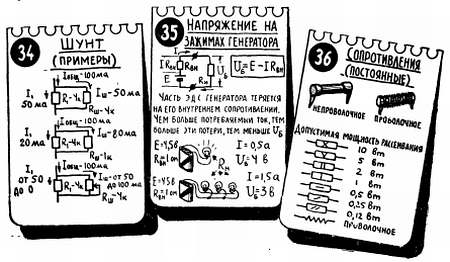 34
ШУНТ
(ПРИМЕРЫ)
Iобщ=100ма
I₁
50ма
R₁-4к
Iш-50ма
Rш-4к
Iобщ-100ма
I₁
20ма
R₁-4к
Iш-80ма
Rш-1к
Iобщ-100ма
I₁
от 50
до 0
R₁-4к
Iш-от 50
до 100 ма
Rш-4к
35
НАПРЯЖЕНИЕ НА
ЗАЖИМАХ ГЕНЕРАТОРА
I
IRвн
Rвн
E
Uб
Rн
Uб=E-IRвн
ЧАСТЬ ЭДС ГЕНЕРАТОРА ТЕРЯЕТСЯ
НА ЕГО ВНУТРЕННЕМ СОПРОТИВЛЕНИИ.
ЧЕМ БОЛЬШЕ ПОТРЕБЛЯЕМЫЙ ТОК, ТЕМ
БОЛЬШЕ ЭТИ ПОТЕРИ, ТЕМ МЕНЬШЕ Uб
E=4,5в
Rвн=1ом
Rн
I=0,5а
Uб=4В
E=4,5в
Rвн=1ом
I=1,5а
Uб=3В
36
СОПРОТИВЛЕНИЯ
(ПОСТОЯННЫЕ)
НЕПРОВОЛОЧНОЕ
ПРОВОЛОЧНОЕ
ДОПУСТИМАЯ МОЩНОСТЬ РАССЕИВАНИЯ
X 10 вт
V 5 вт
II 2 вт
I 1 вт
0,5 вт
0,25 вт
0,12 вт
ПРОВОЛОЧНОЕ